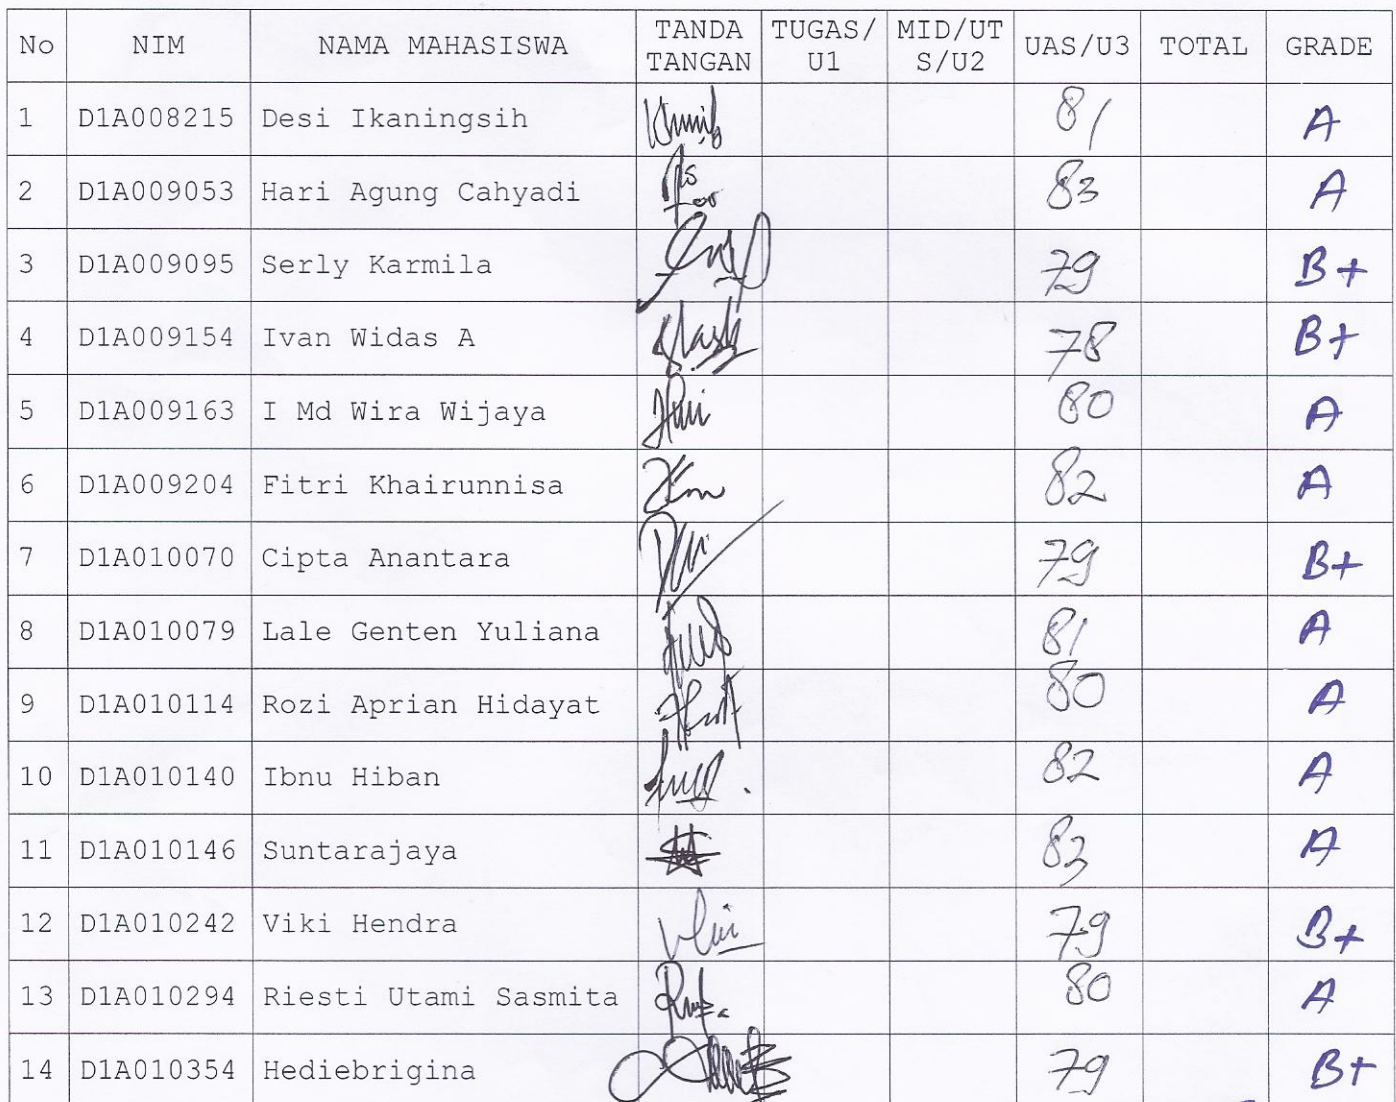 No NIM NAMA MAHASISWA TANDA TANGAN TUGAS/U1 MID/UTS/U2 UAS/U3 TOTAL GRADE
1 D1A008215 Desi Ikaningsih 81 A
2 D1A009053 Hari Agung Cahyadi 83 A
3 D1A009095 Serly Karmila 79 B+
4 D1A009154 Ivan Widas A 78 B+
5 D1A009163 I Md Wira Wijaya 80 A
6 D1A009204 Fitri Khairunnisa 82 A
7 D1A010070 Cipta Anantara 79 B+
8 D1A010079 Lale Genten Yuliana 81 A
9 D1A010114 Rozi Aprian Hidayat 80 A
10 D1A010140 Ibnu Hiban 82 A
11 D1A010146 Suntarajaya 83 A
12 D1A010242 Viki Hendra 79 B+
13 D1A010294 Riesti Utami Sasmita 80 A
14 D1A010354 Hediebrigina 79 B+